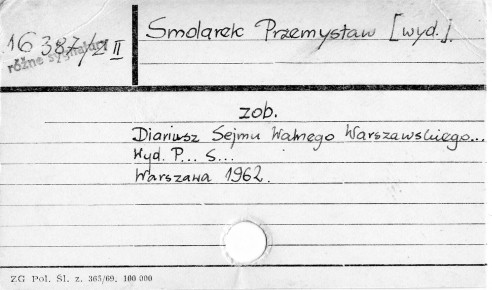 Smolarek Przemysław [wyd.].
16 387/ II
różne sygnatury
zob.
Diariusz Sejmu Walnego Warszawskiego...
Wyd. P... S...
Warszawa 1962.
ZG Pol. Śl. z. 365/69. 100 000